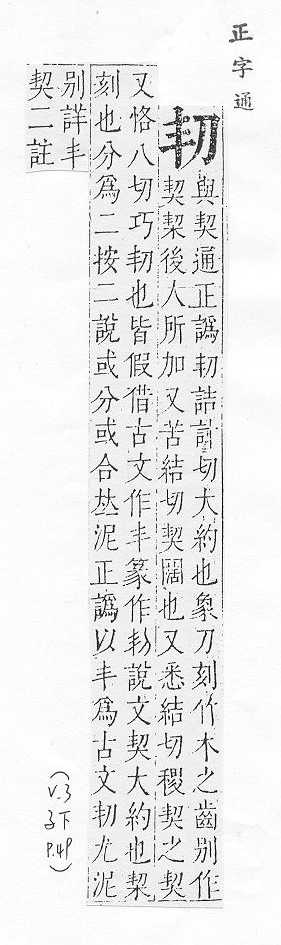 正字通
㓞
與契通正譌㓞詰計切大約也象刀刻竹木之齒別作
契栔後人所加又苦結切契闊也又悉結切稷契之契
又恪八切巧㓞也皆假借古文作丯篆作㓞說文契大約也栔
刻也分爲二按二說或分或合𠀤泥正譌以丯爲古文㓞尤泥
別詳丯
契二註
(V.3
子下
P.49)